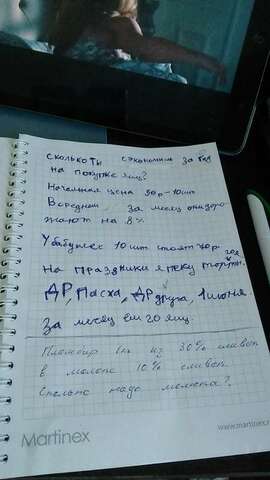 сколько ты сэкономим за год
на покупке яиц?
Начальная цена 90р-10шт
В среднем, за месяц они доро-
жают на 8%
У бабушке 10 шт стоят 40р
год
на праздники я пеку торты.
ДР, Пасха, ДР друга, 1 июня
за месяц ем 20 яиц.
Пломбир из 30% сливок
в молоке 10% сливок
Сколько надо молока?
Martinex
www.martinex